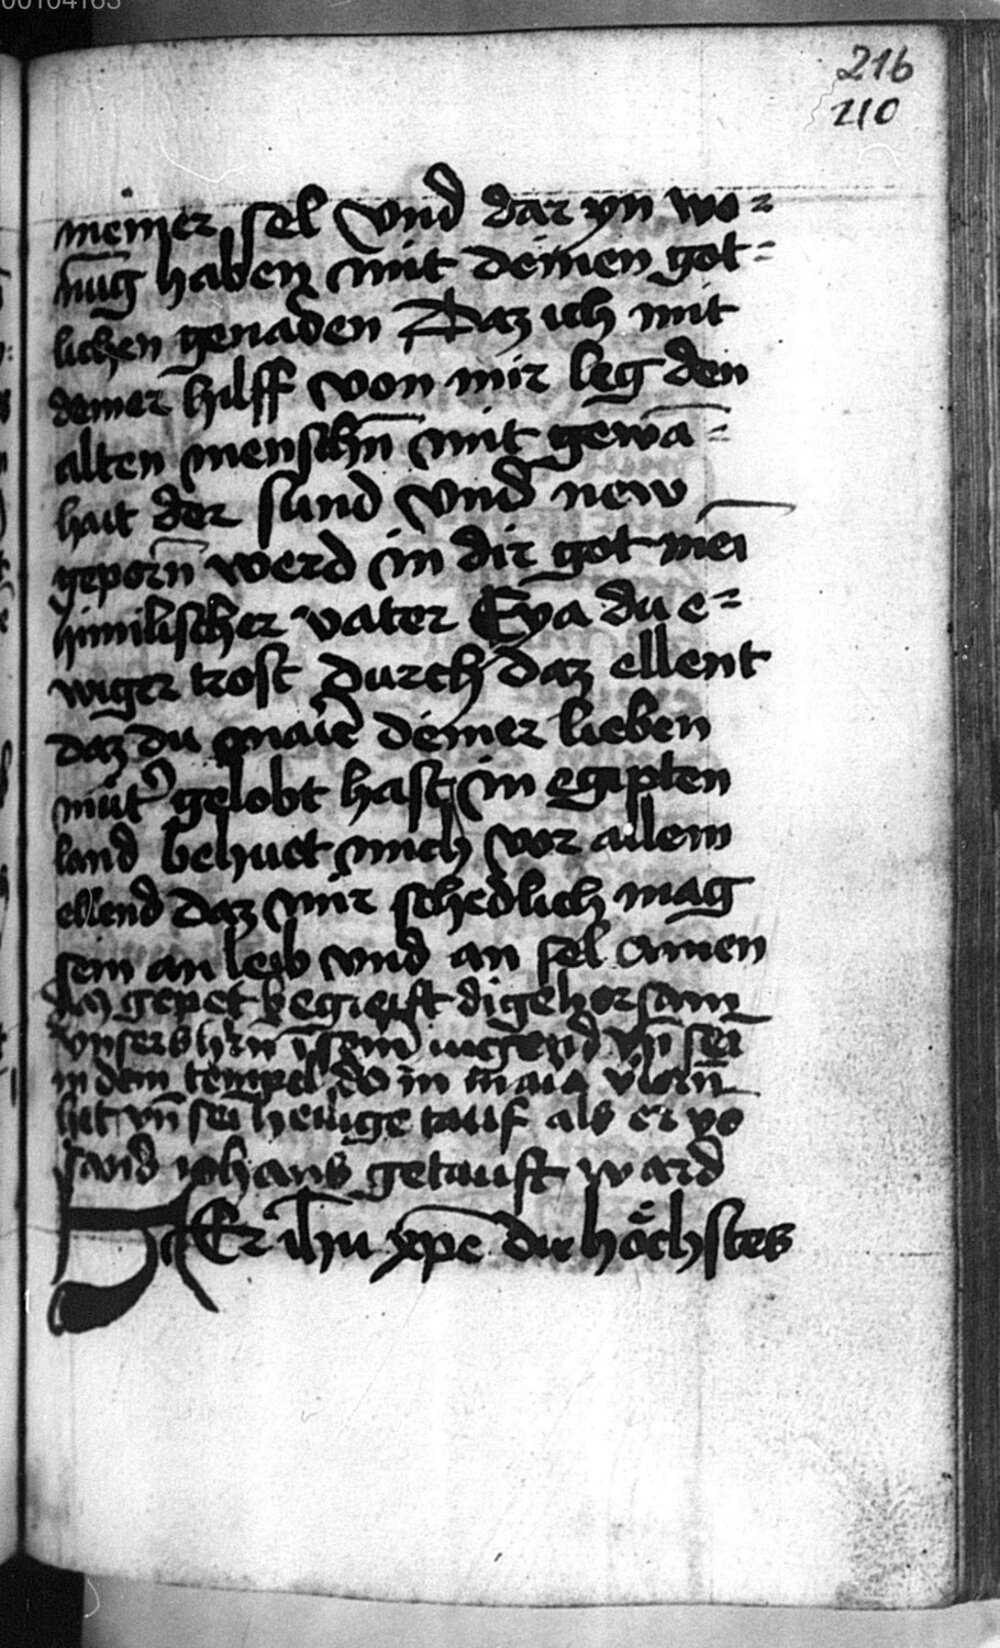 00104163
216
210
meiner sel Vnd dar yn wo=
nūg haben mit deinen got=
lichen genaden Daz ich mit
deiner hilff von mir leg den
alten menschn̄ mit gewā=
hait der sund Vnd new
geporn̄ werd in dir got mēi
himilischer vater Eya du e=
wiger trost durch daz ellent
daz du deiner lieben
mut̉ gelobt hast in egipten
land behuet mich vor allem
ellend daz mir schedlich mag
sein an leib vnd an sel Amen
daz gepet begreift di gehorsam
vnsers hrn̄ ī seiner iugend vn̄ sēi
in dem tempel do in maia v̉lorn̄
het vn̄ sēi heilige tauf als er vō
sand iohans getauft ward
HEr ih̄u xp̄e du höchstes